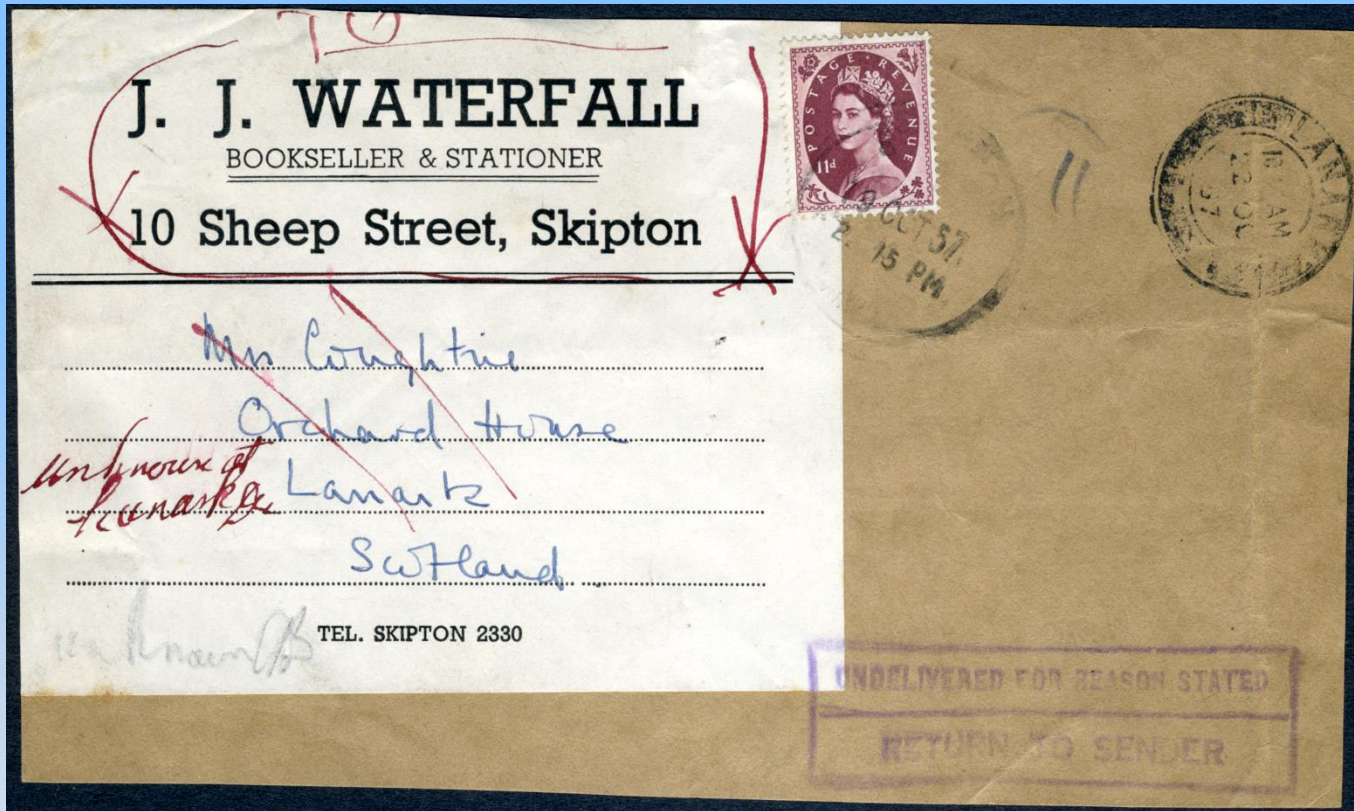 TO
J. J. WATERFALL
BOOKSELLER & STATIONER
10 Sheep Street, Skipton
POSTAGE REVENUE
11d
OCT 57
2 15 PM
11
LANARK
AM
22 OC
57
Mrs Coughtrie
Orchard House
Lanark
Scotland.
unknown at
Lanark
unknown
TEL. SKIPTON 2330
UNDELIVERED FOR REASON STATED
RETURN TO SENDER